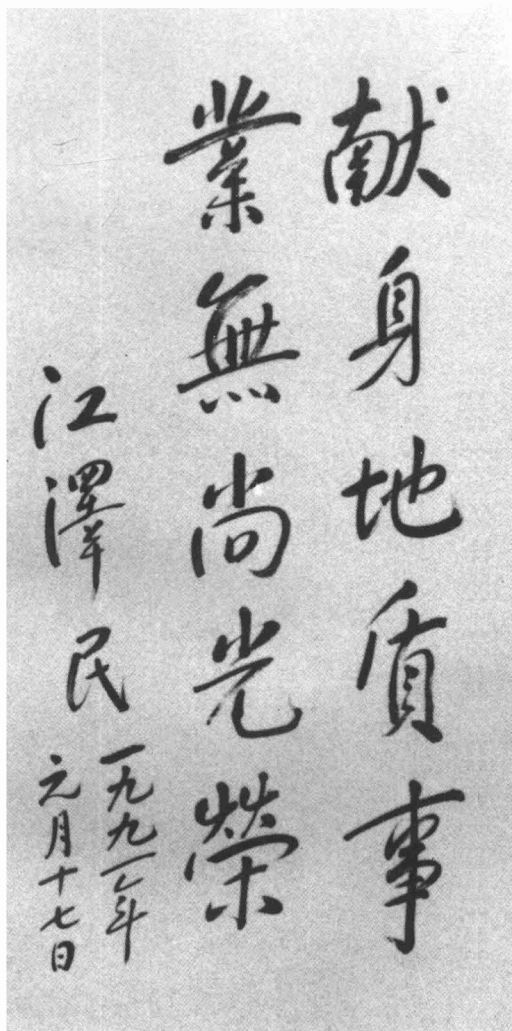 献身地質事
業無尚光榮
江澤民
一九九一年
元月十七日